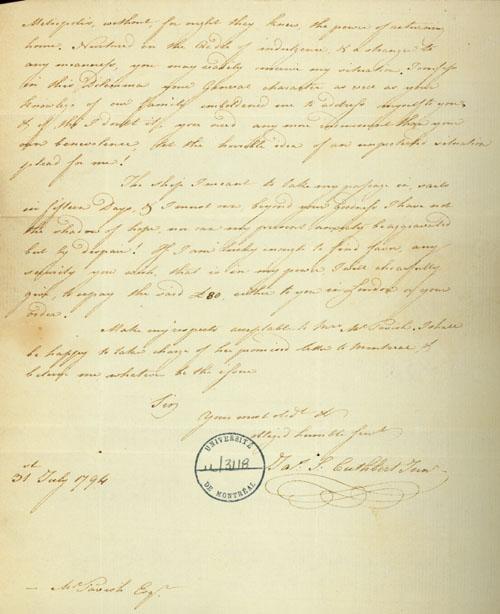 Metropolis, without, for ought they know, the power of returning
home. Nurtured in the Cradle of indulgence, & a stranger to
any meanness, you may easily conceive my situation. I confess
in this Dilemma your General character as well as your
knowledge of our family emboldened me to address myself to you
& if I doubt if you need any more inducement than your
own benevolence, let the horrible idea of an unprotected situation
plead for me!
The ship I meant to take my passage in, sails
in fifteen Days, & I must own, beyond your Goodness I have not
the shadow of hope, nor can my present anxiety be aggravated
but by despair! If I am lucky enough to find favor, any
security you wish, that is in my power I will chearfully
give, to repay the said £80, either to you in London or your
order.
Make my respects acceptable to Mrs. I shall
be happy to take charge of her promised letter to Montreal, &
believe me whatever be the issue
Sir,
Your most obdt. &
Oblig'd humble Servt.
Jas. S. Cuthbert Junr.
UNIVERSITÉ
DE MONTRÉAL
31st July 1794
Esqr.